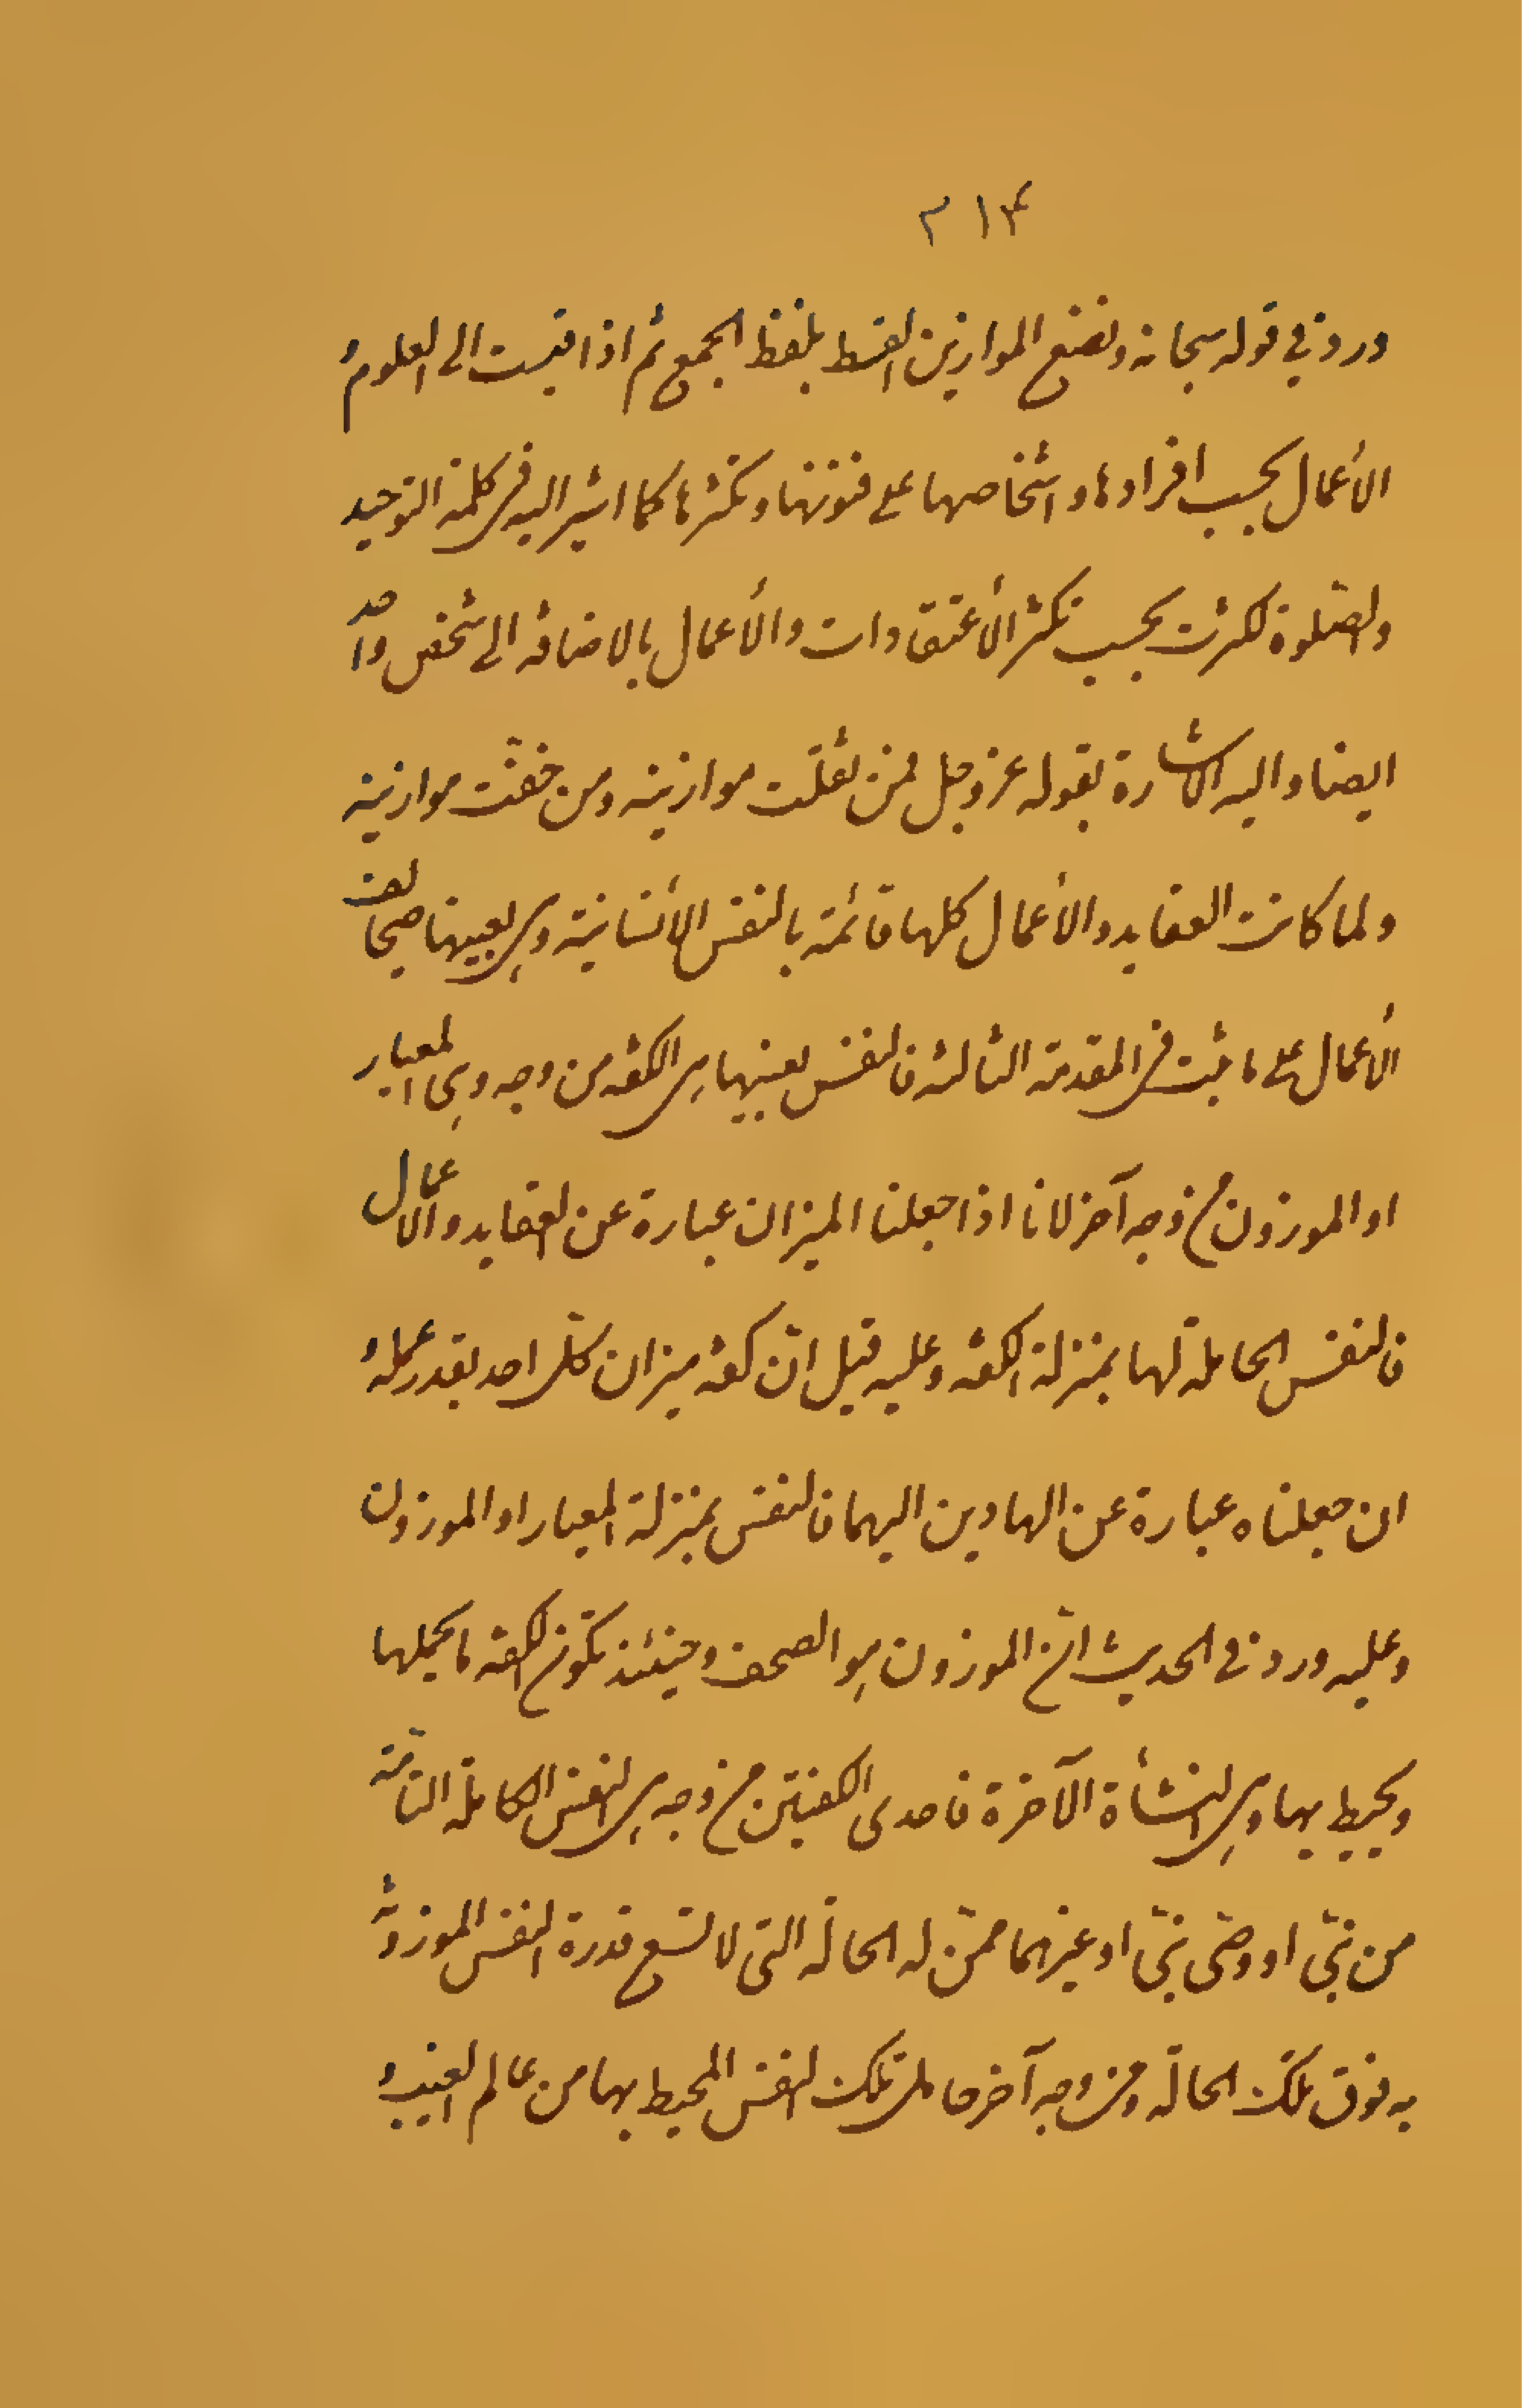 ۲۱۴
ورد في قوله سبحانه ونضع الموازين القسط بلفظ الجمع ثم اذا قيست الى العلوم و
الأعمال بحسب افرادها و اشخاصها على فنونها و تكثرها كما اشير اليه في كلمة التوحيد
والصّلوة كثرت بحسب تكثر الأعتقادات والأعمال بالاضافة الى شخص واحد
ايضا و اليه الاشارة بقوله عز و جل فمن ثقلت موازينه ومن خفّت موازينه
ولما كانت العقايد و الأعمال كلها قائمة بالنفس الأنسانية وهي بعينها صحائف
الأعمال على ما ثبت في المقدمة الثالثة فالنفس بعينها هي الكفة من وجه وهي المعيار
او الموزون من وجه آخر لانا اذا جعلنا الميزان عبارة عن العقايد و الاعمال
فالنفس الحاملة لها بمنزلة الكفة و عليه قيل انّ كفة ميزان كلّ احد بقدر عمله و
ان جعلناه عبارة عن الهادين اليهما فالنفس بمنزلة المعيار او الموزون
وعليه ورد في الحديث انّ الموزون هو الصحف و حينئذ تكون الكفة ما يحملها
ويحيط بها وهي النشأة الآخرة فاحدى الكفتين من وجه هي النفس الكاملة التامّة
من نبّي او وصّي نبّي او غيرهما ممّن له الحالة التي لا تسع قدرة النفس الموزونة
به فوق تلك الحالة ومن وجه آخر حامل تلك النفس المحيط بها من عالم الغيب و